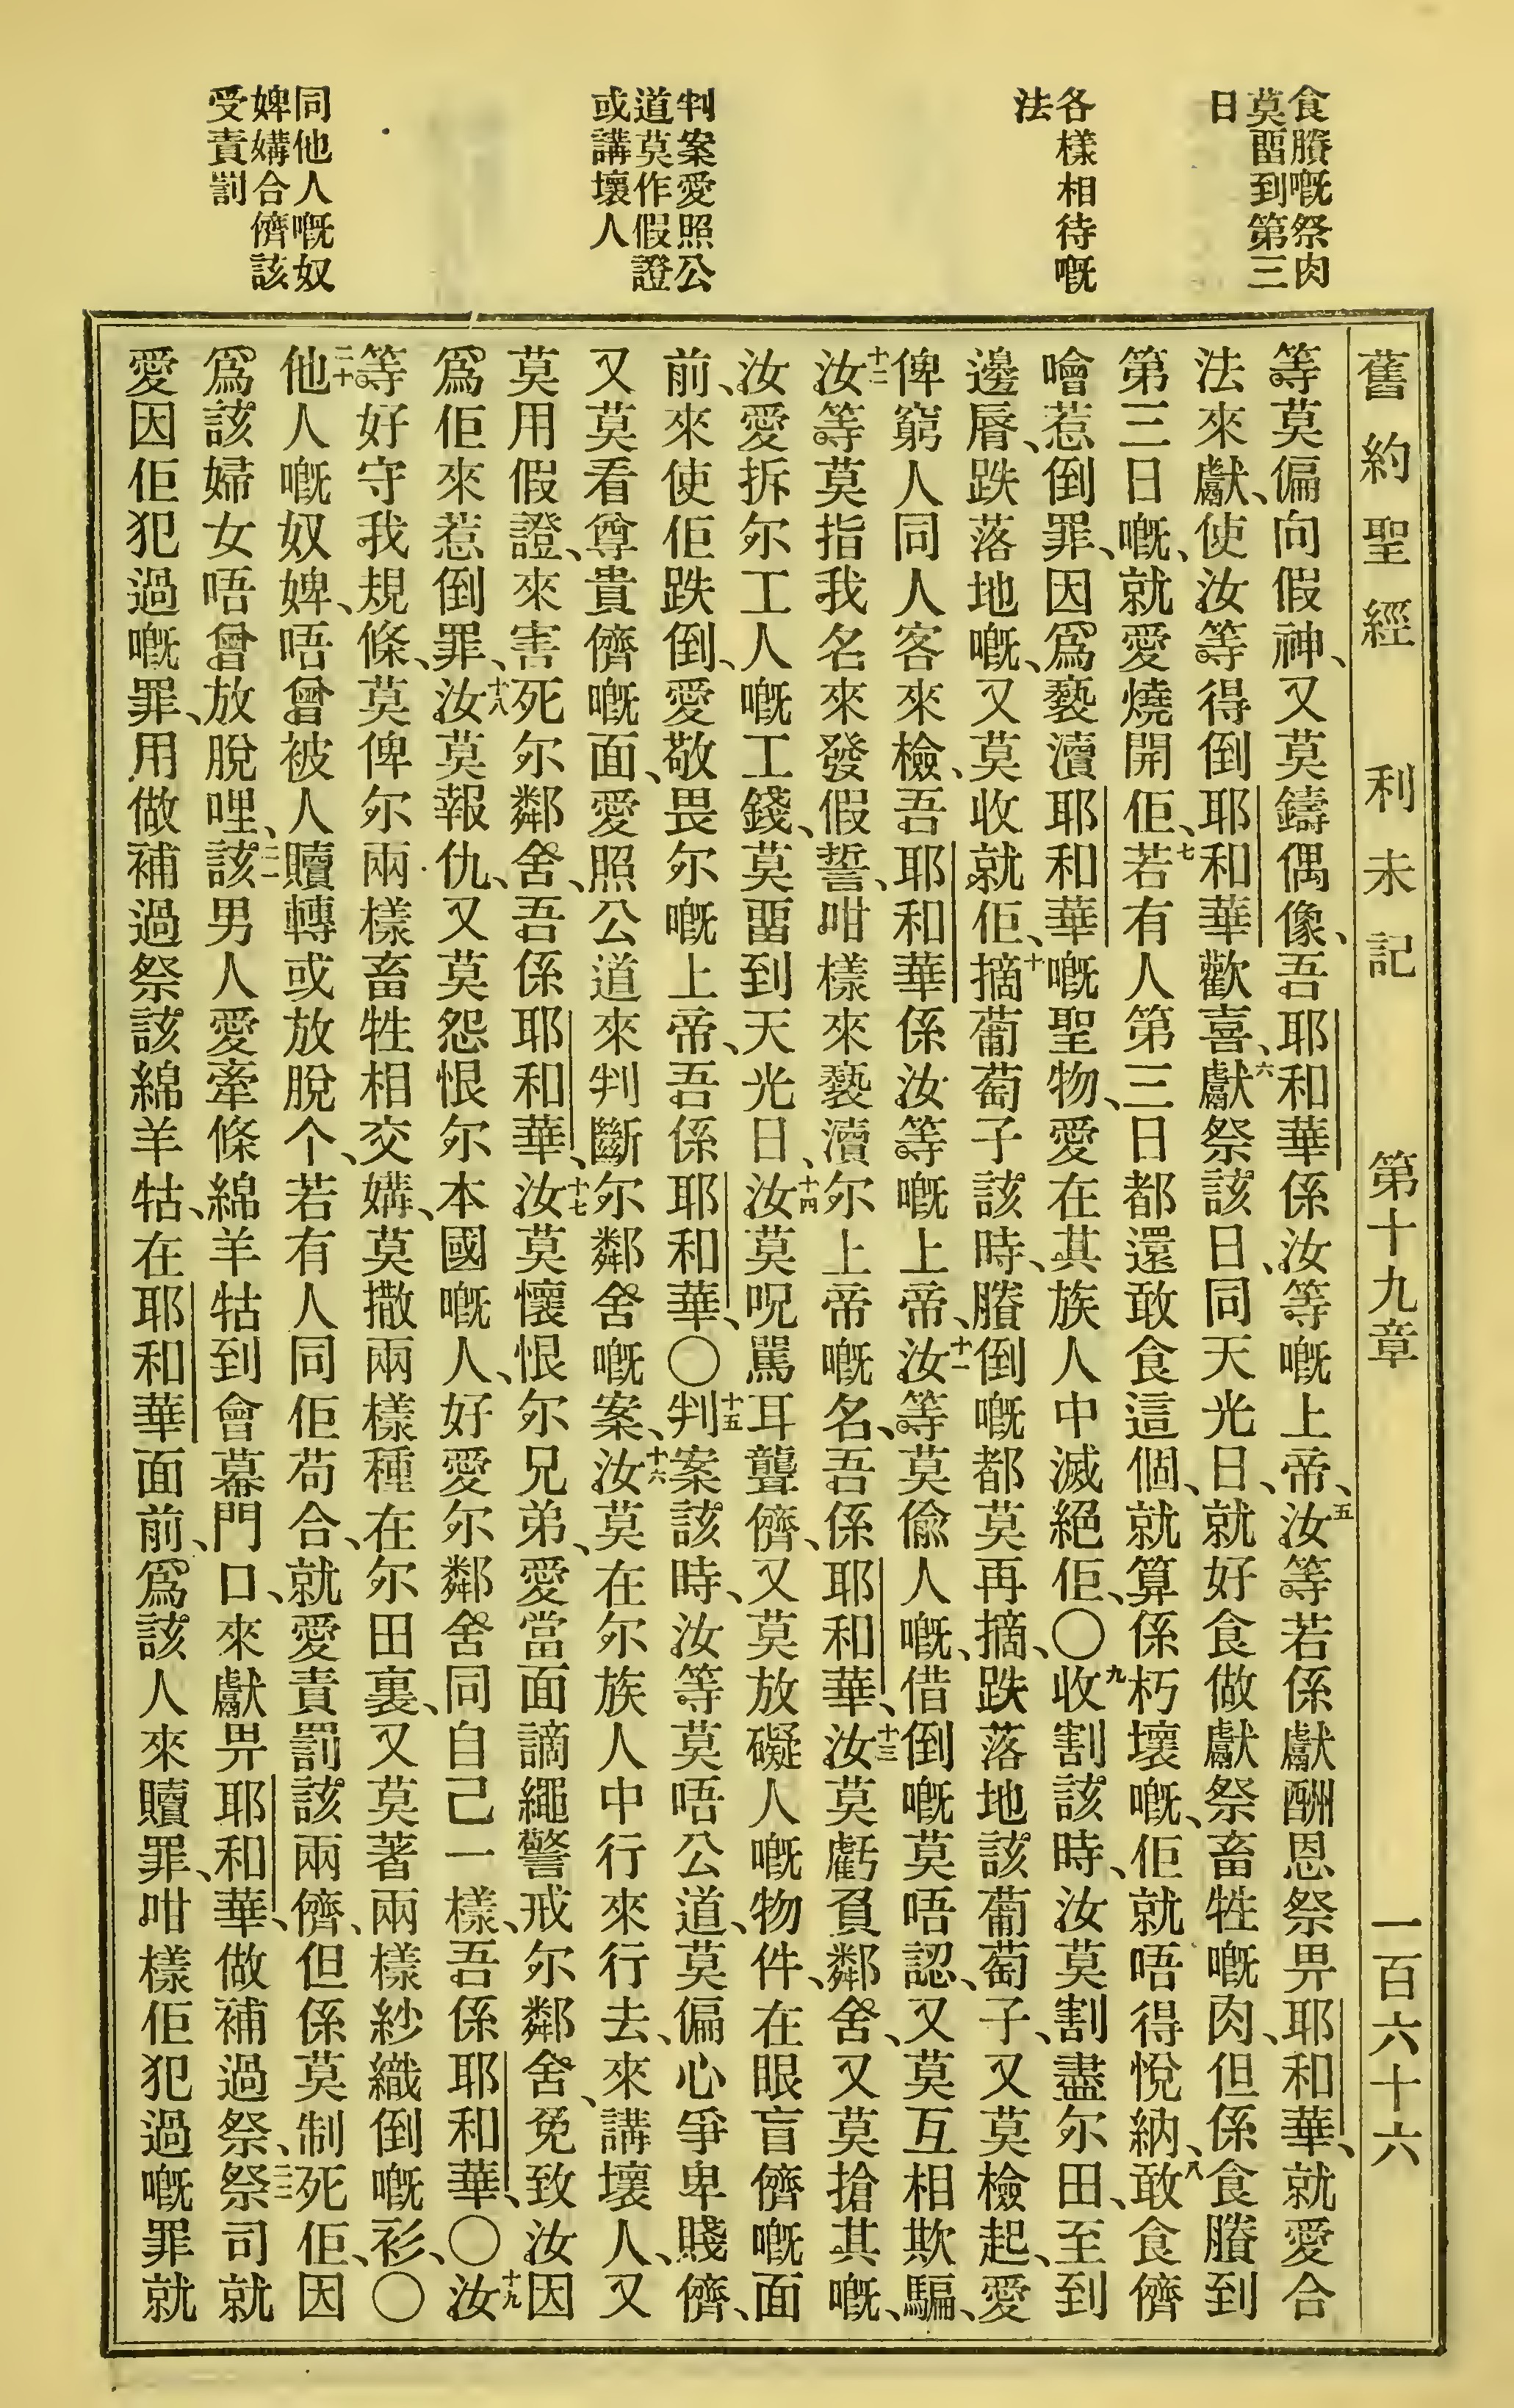 食賸嘅祭肉
莫畱到第三
日
各樣相待嘅
法
判案愛照公
道莫作假證
或講壞人
同他人嘅奴
婢媾合儕該
受責罰
舊約聖經　利未記　第十九章　一百六十六
等莫偏向假神、又莫鑄偶像、吾耶和華係汝等嘅上帝、五汝等若係獻酬恩祭畀耶和華、就愛合
法來獻、使汝等得倒耶和華歡喜、六獻祭該日、同天光日、就好食做獻祭畜牲嘅肉、但係食賸到
第三日嘅、就愛燒開佢、七若有人第三日都還敢食這個、就算係朽壞嘅、佢就唔得悅納、八敢食儕
噲惹倒罪、因爲褻瀆耶和華嘅聖物、愛在其族人中滅絕佢、〇九收割該時、汝莫割盡尔田、至到
邊脣、跌落地嘅、又莫收就佢、十摘葡萄子該時、賸倒嘅都莫再摘、跌落地該葡萄子、又莫檢起、愛
俾窮人同人客來檢、吾耶和華係汝等嘅上帝、十一汝等莫偸人嘅、借倒嘅莫唔認、又莫互相欺騙、
十二汝等莫指我名來發假誓、咁樣來褻瀆尔上帝嘅名、吾係耶和華、十三汝莫虧負鄰舍、又莫搶其嘅、
汝愛拆尔工人嘅工錢、莫畱到天光日、十四汝莫呪駡耳聾儕、又莫放礙人嘅物件、在眼盲儕嘅面
前、來使佢跌倒、愛敬畏尔嘅上帝、吾係耶和華、〇十五判案該時、汝等莫唔公道、莫偏心爭卑賤儕、
又莫看尊貴儕嘅面、愛照公道來判斷尔鄰舍嘅案、十六汝莫在尔族人中行來行去、來講壞人、又
莫用假證、來害死尔鄰舍、吾係耶和華、十七汝莫懷恨尔兄弟、愛當面謫繩警戒尔鄰舍、免致汝因
爲佢來惹倒罪、十八汝莫報仇、又莫怨恨尔本國嘅人、好愛尔鄰舍同自己一樣、吾係耶和華、〇十九汝
等好守我規條、莫俾尔兩樣畜牲相交媾、莫撒兩樣種在尔田裏、又莫著兩樣紗織倒嘅衫、〇
二十他人嘅奴婢、唔曾被人贖轉或放脫个、若有人同佢苟合、就愛責罰該兩儕、但係莫制死佢、因
爲該婦女唔曾放脫哩、二一該男人愛牽條綿羊牯到會幕門口、來獻畀耶和華、做補過祭、二二祭司就
愛因佢犯過嘅罪、用做補過祭該綿羊牯、在耶和華面前、爲該人來贖罪、咁樣佢犯過嘅罪就